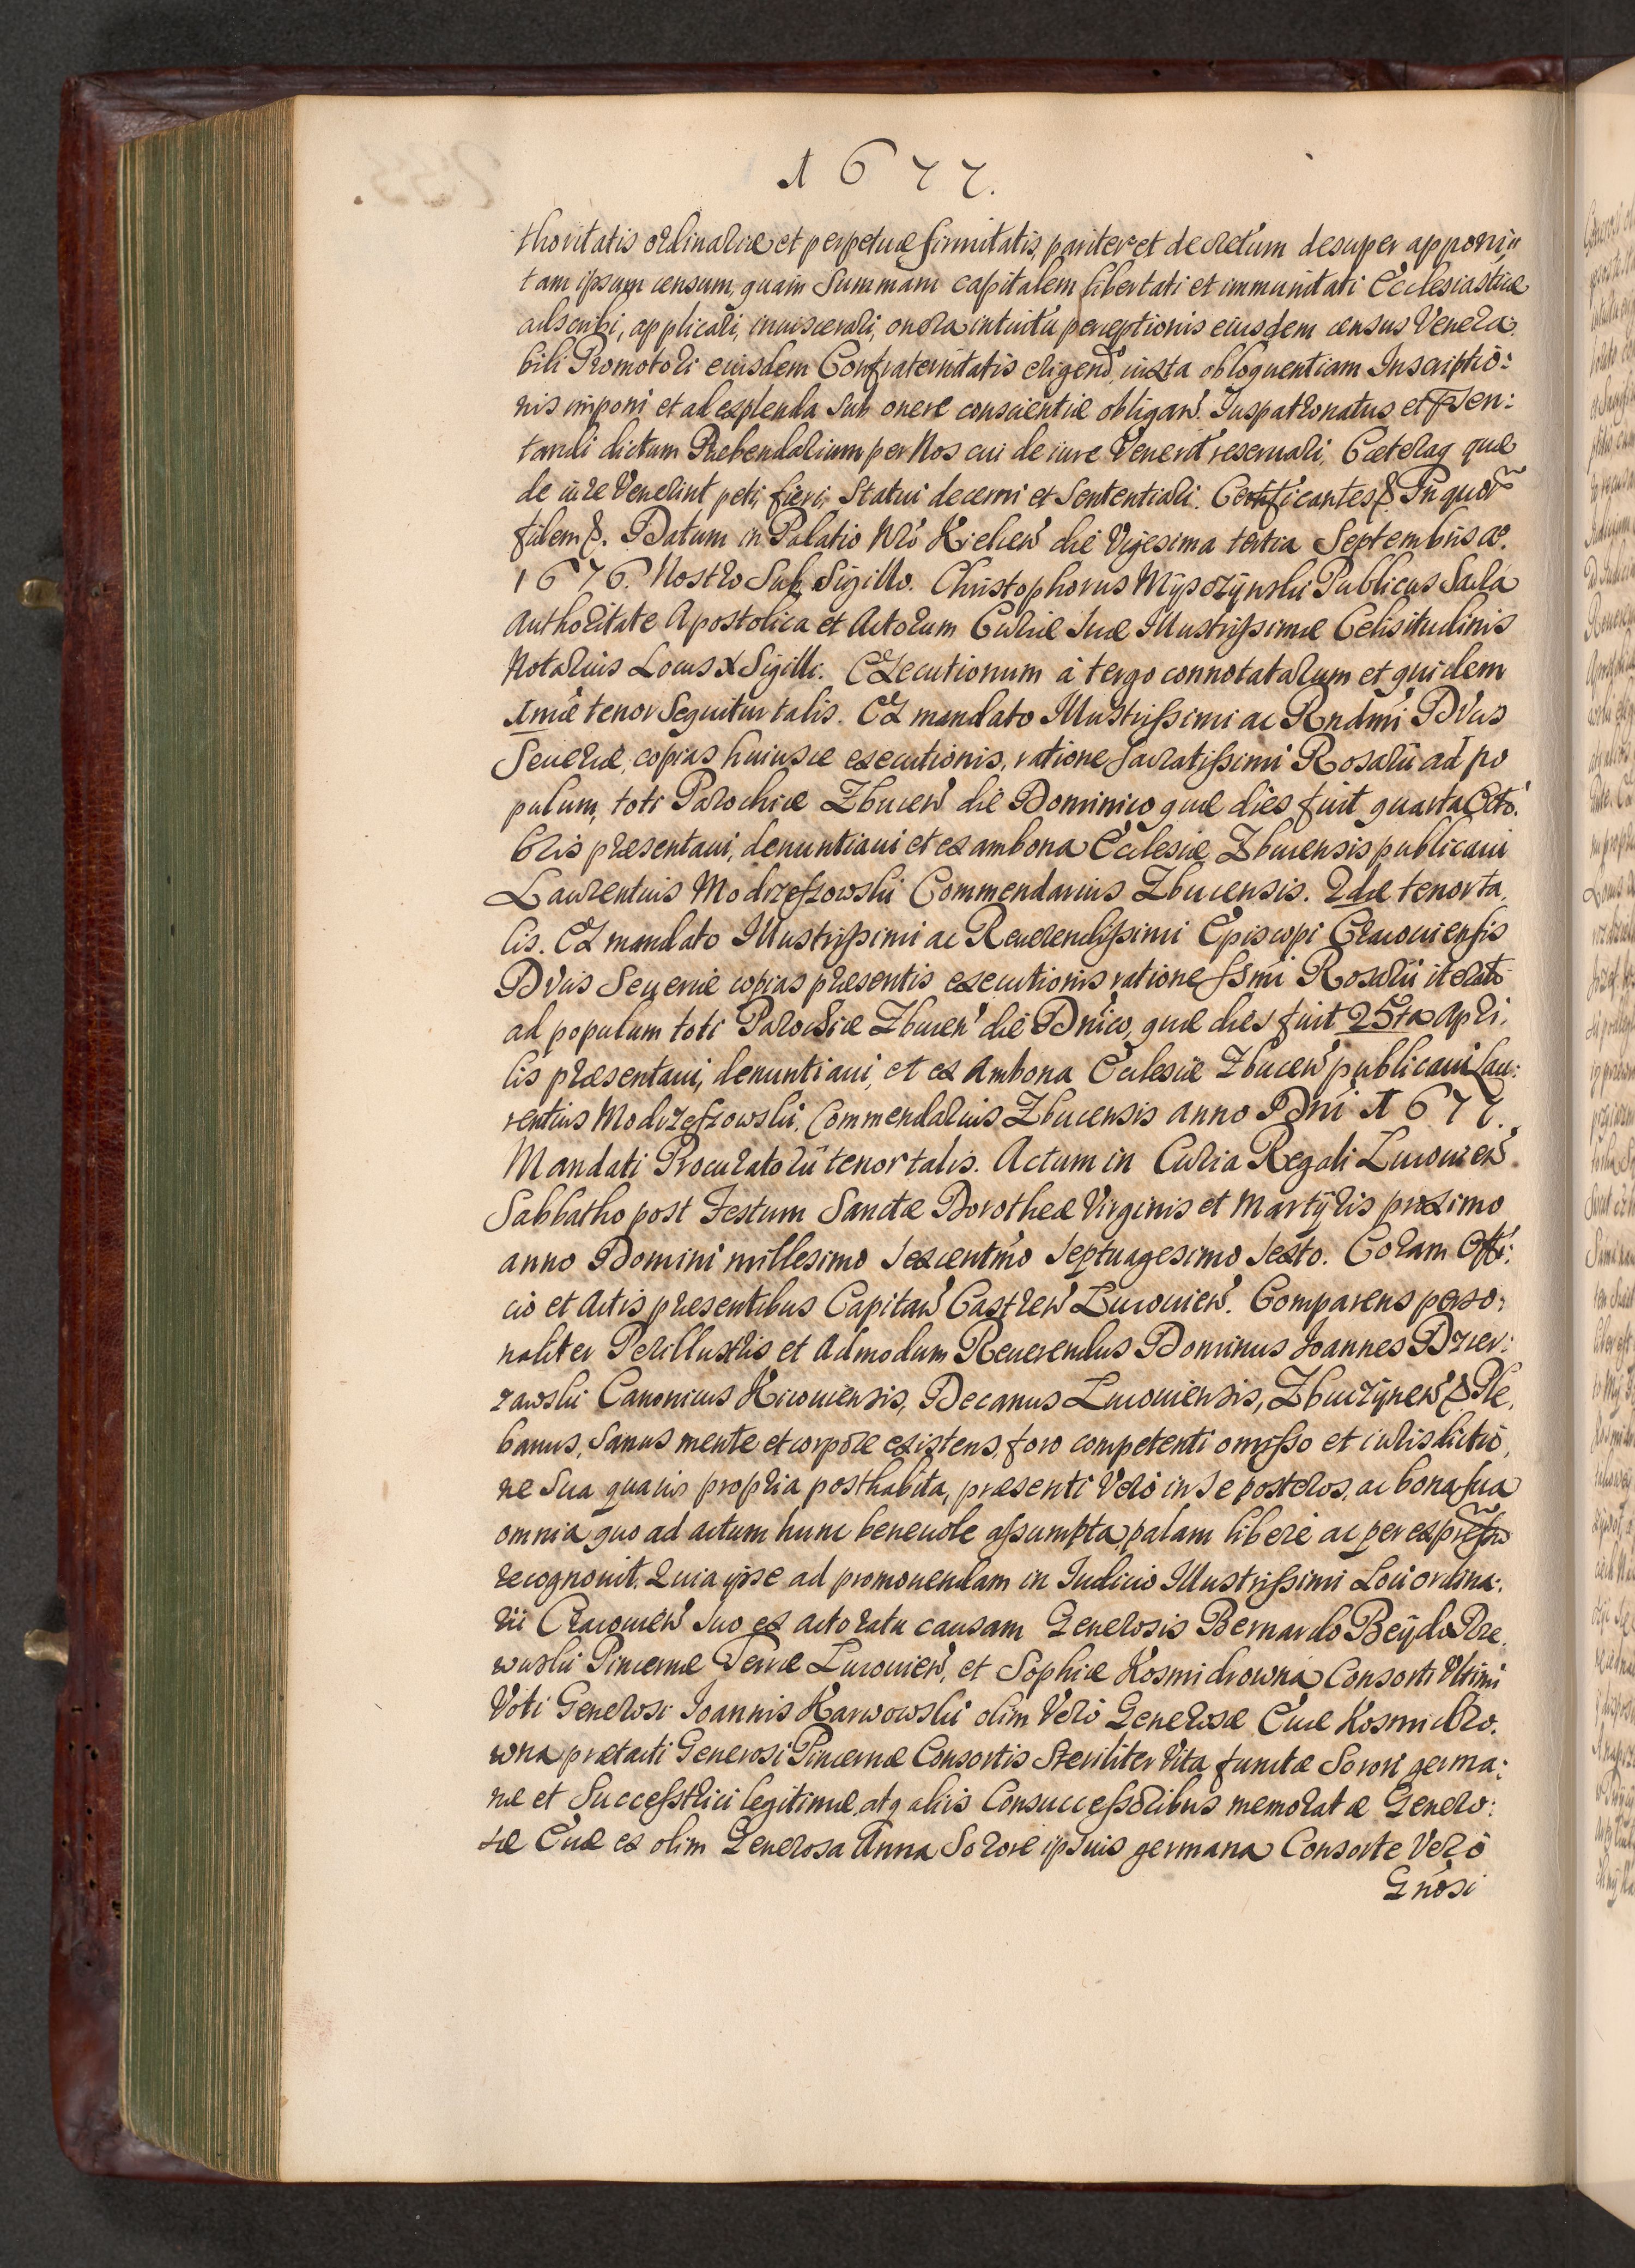 1677.
thoritatis ordinariæ et perpetuæ firmitatis, pariter et decretum desuper apponi,,
tam ipsum censum, quam Summam capitalem libertati et immunitati Ecclesiasticæ
adscribi, applicari, inviscerari, onera intuitu perceptionis eiusdem census Venera:
bili Promotori eiusdem Confraternitatis eligend, iuxta obloquentiam Inscriptio:
nis imponi et ad explenda sub onere conscientiæ obligari. Juspatronatus et
tandi dictum Præbendarium per Nos cui de iure Venerit reservari, Cæteraq quæ
de iure Venerint peti, fieri, Statui decerni et Sententiari. Certificantes &. In quor
fidem &. Datum in Palatio Nro Kielcen die Vigesima tertia Septembris ao.
1676. Nostro Sub Sigillo. Christophorus Publicus Sacra
Authoritate Apostolica et Actorum Curiæ Suæ Illustrissimæ Celsitudinis
Notarius Locus X Sigilli. Executionum à tergo connotatarum et quidem
1mæ tenor Sequitur talis. Ex mandato Illustrissimi ac Rndmi Dvas
Severiæ, copias huiusce executionis, ratione Sacratissimi Rosarii ad po
pulum, toti Parochiæ Zbucen die Dominico quæ dies fuit quarta Octo:
bris præsentavi, denuntiavi et ex ambona Ecclesiæ Zbucensis publicavi
Laurentius Modrzeszowski Commendarius Zbucensis. 2dæ tenor ta,
lis. Ex mandato Illustrissimi ac Reverendissimi Episcopi Cracoviensis
Dvis Severiæ copias præsentis executionis ratione SSmi Rosarii iterato
ad populum toti Parochiæ Zbucen die Dnico, quæ dies fuit 25ta Apri,
lis præsentavi, denuntiavi, et ex Ambona Ecclesiæ Zbucen publicavi Lau:
rentius Modrzeszowski, Commendarius Zbucensis anno Dni 1677.
Mandati Procuratorii tenor talis. Actum in Curia Regali Lucovien
Sabbatho post Festum Sanctæ Dorotheæ Virginis et Martyris proximo
anno Domini millesimo sexcentmo Septuagesimo sexto. Coram Offi:
cio et Actis præsentibus Capitan Castren Lucovien. Comparens perso:
naliter Perillustris et Admodum Reverendus Dominus Joannes Dzier:
zawski Canonicus Kiioviensis, Decanus Lucoviensis, Zbuczynen & Ple,
banus, Sanus mente et corpore existens, foro competenti omisso et iurisdictio,
ne Sua quavis propria posthabita, præsenti Verò in se posteros, ac bona sua
omnia quo ad actum hunc benevole assumpta, palam liberè ac per
recognovit. Quia ipse ad promovendam in Judicio Illustrissimi Loci ordina:
rii Cracovien Suo ex actoratu causam Generosis Bernardo Beydo Rze,
wuski Pincernæ Terræ Lucovien, et Sophiæ Kosmidrowna Consorti Ultimi
Voti Generosi Joannis Karwowski olim Verò Generosæ Evæ Kosmidro.
wna prætacti Generosi Pincernæ Consortis Steriliter Vita functæ Sorori germa:
næ et Successtrici legitimæ, atq aliis Consuccessoribus memoratæ Genero:
sæ Evæ ex olim Generosa Anna Sorore ipsius germana Consorte Verò
Gnosi